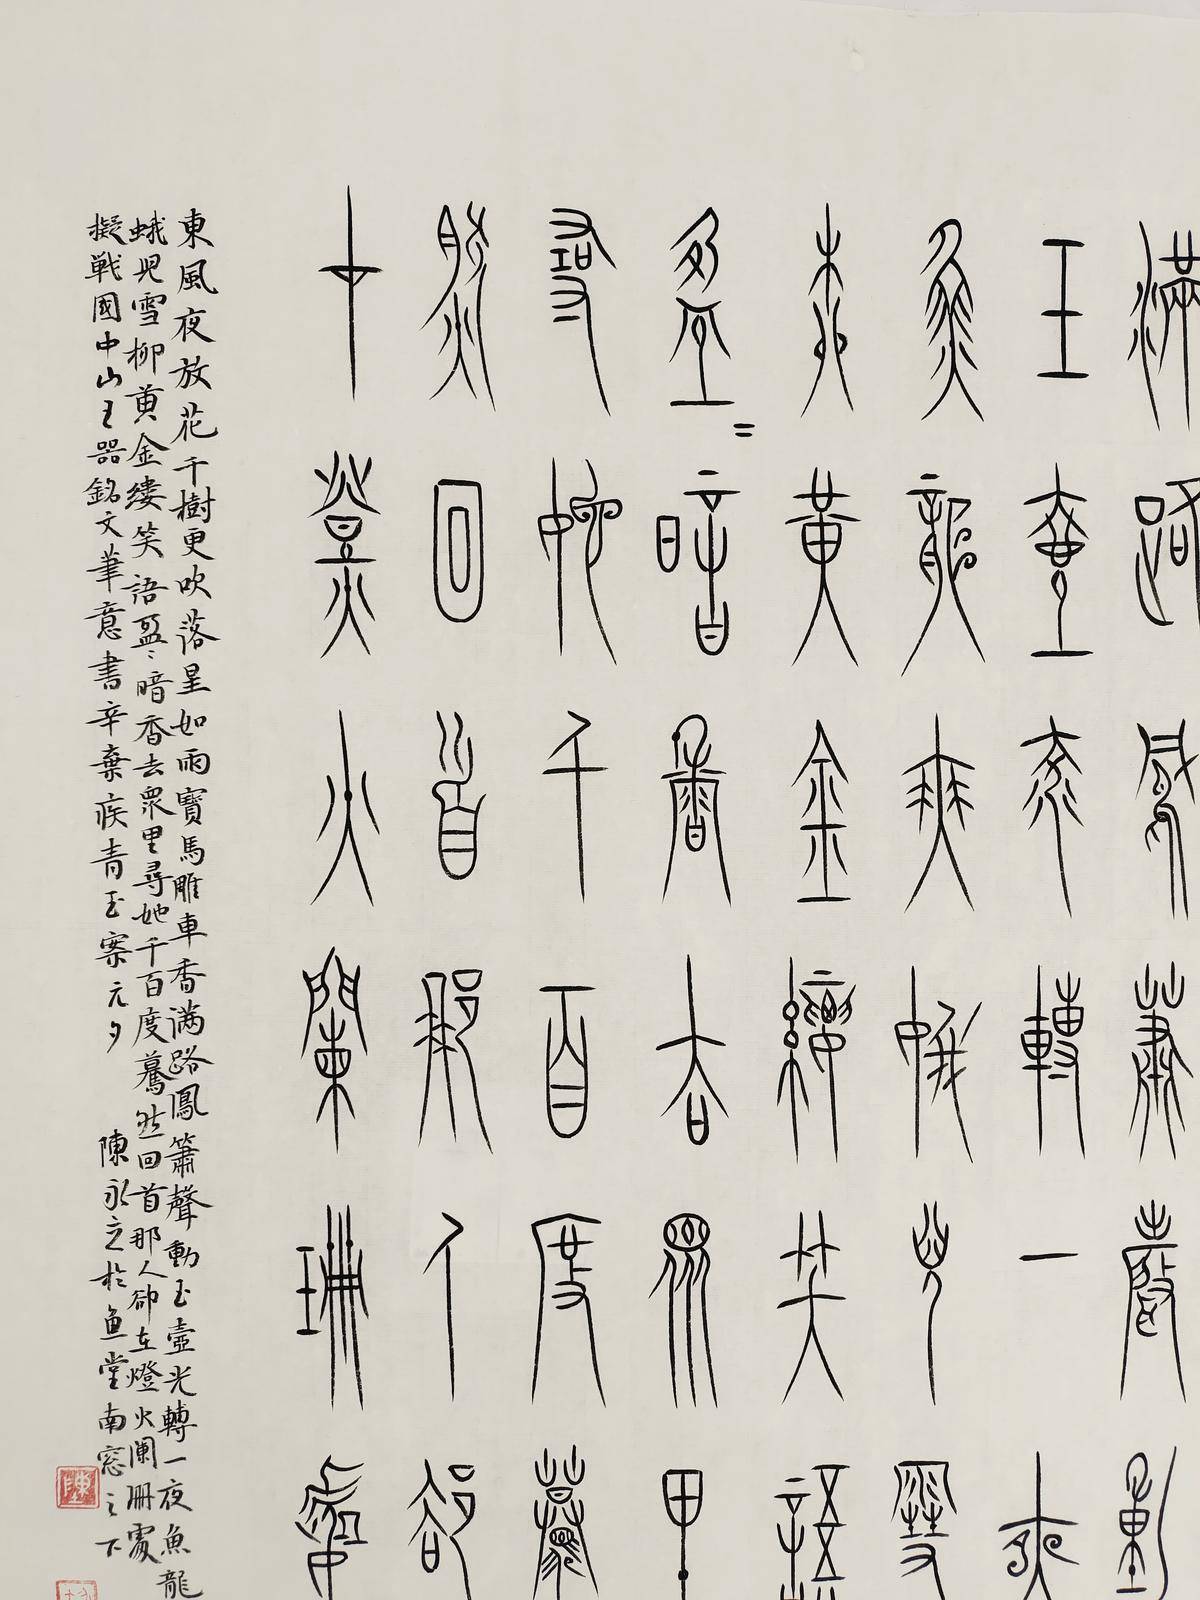 滿路鳳簫聲動
玉壺光轉一夜
魚龍舞蛾兒雪
柳黃金縷笑語
盈=暗香去眾里
尋她千百度驀
然回首那人卻
在燈火闌珊處
東風夜放花千樹更吹落星如雨寶馬雕車香滿路鳳簫聲動玉壺光轉一夜魚龍
蛾兒雪柳黃金縷笑語盈〻暗香去眾里尋她千百度驀然回首那人卻在燈火闌珊處
擬戰國中山王器銘文筆意書辛棄疾青玉案元夕 陳永之於魚堂南窓之下
陳